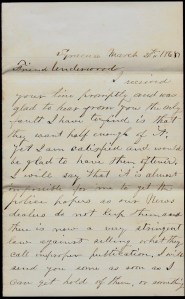 Syracuse March 30th 1868
Friend Underwood
I received
your line promptly and was
glad to hear from you the only
fault I have to find is that
they aren't half enough of it,
yet I am satisfied and would
be glad to have them oftener.
I will say that it is almost
impossible for me to get the
police papers as our News
dealers do not keep them and
there is now a very stringent
law against selling what they
call improper publication, I will
send you some as soon as I
can get hold of them, or something